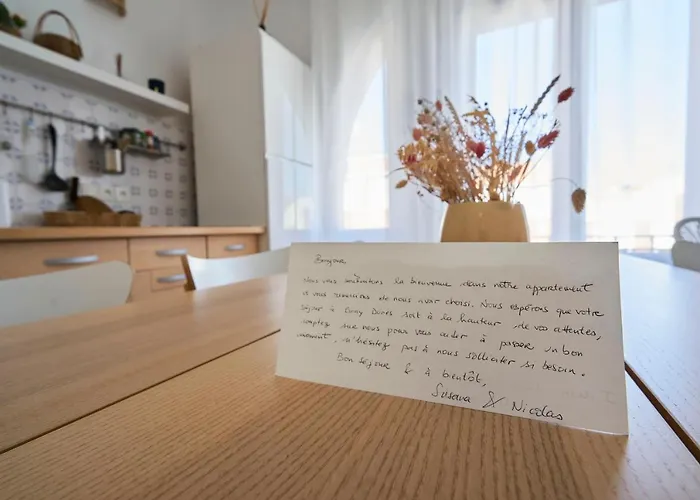 Bonjour
Nous vous souhaitons la bienvenue dans notre appartement
et vous remercions de nous avoir choisi. Nous espérons que votre
séjour à Dury Durés soit à la hauteur de vos attentes,
comptez sur nous pour vous aider à passer un bon
moment, n'hésitez pas à nous solliciter si besoin.
Bon séjour & à bientôt,
Susana & Nicolas